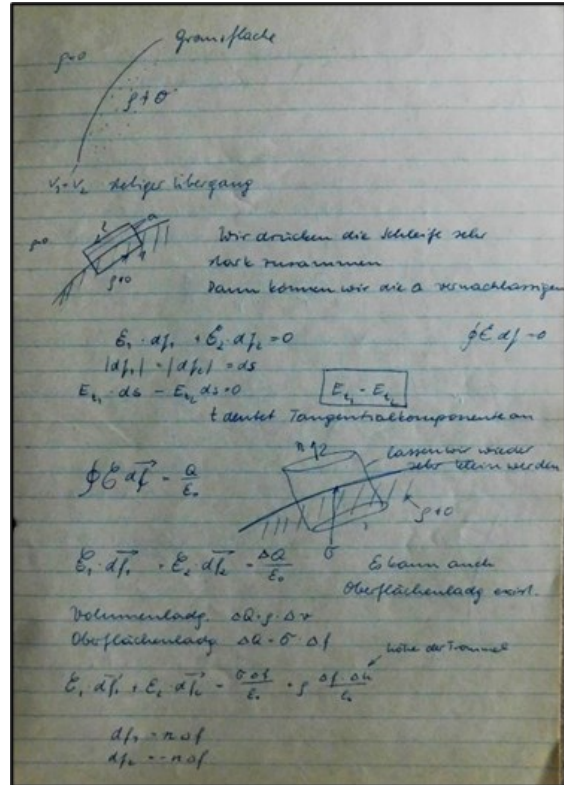 Grenzfläche
ρ=0
ρ≠0
V₁=V₂ stetiger Übergang
a
ρ=0
ρ≠0
Wir drücken die Schleife sehr
stark zusammen
Dann können wir die a vernachlässigen
E₁ · df₁ + E₂ · df₂ = 0
∮E df = 0
|df₁| = |df₂| = ds
E_t₁ · ds − E_t₂ ds = 0
E_t₁ = E_t₂
t deutet Tangentialkomponente an
n 2
lassen wir wieder
sehr klein werden
∮E df⃗ = Q/ε₀
ρ≠0
σ
E₁ · df₁⃗ + E₂ · df₂⃗ = ΔQ/ε₀
Es kann auch
Oberflächenladg exist.
Volumenladg. ΔQ = ρ · Δv
Oberflächenladg ΔQ = σ · Δf
Höhe der Trommel
E₁ · df₁⃗ + E₂ · df₂⃗ = σΔf/ε₀ + ρ Δf · Δh/ε₀
df₁ = nΔf
df₂ = −nΔf